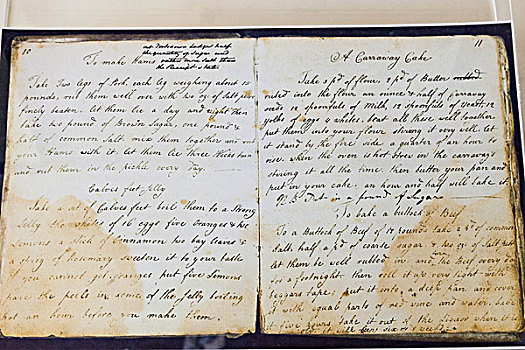 10
To make Hams
at Jackson Lodge half
the quantity of Sugar and
rather more Salt than
the Receipt is better
Take Two legs of Pork, each leg weighing about 15
pounds, rub them well over with two oz of Salt petre
finely beaten. let them lie a day and night then
take two pound of Brown Sugar, one pound &
half of common Salt. mix them together and rub
your Hams with it. let them lie three weeks turn
and rub them in the pickle every day.
Calves feet Jelly
Take a set of Calves feet boil them to a Strong
Jelly the whites of 16 eggs five oranges & two
Lemons a Stick of Cinnamon two bay leaves & a
sprig of Rosemary sweeten it to your taste
you cannot get oranges put five Lemons
pare the peels in some of the Jelly boiling
hot an hour before you make them.
11
A Carraway Cake
Take 3 pd of flour, 2 pd of Butter rubbed
rubed into the flour an ounce & half of Carraway
seeds 12 Spoonfuls of Milk, 12 spoonfuls of yeast, 12
yolks of eggs 4 whites, beat all these well together
put them into your flour stirring it very well. let
it stand by the fire side a quarter of an hour to
rise when the oven is hot strew in the carraways
stiring it all the time. then butter your pan and
put in your cake. an hour and half will bake it
N.B. Put in a pound of Sugar
To bake a buttock of Beef
To a Buttock of Beef of 18 pounds take 2 pd of common
Salt, half a pd of coarse sugar & two oz of Salt petre
let them be well rubbed in and the Beef every day
for a fortnight then roll it up very tight with
beggars tape, put it into a deep pan and cover
it with equal parts of red wine and water. bake
it five hours take it out of the liquor when it
will keep six or 8 weeks